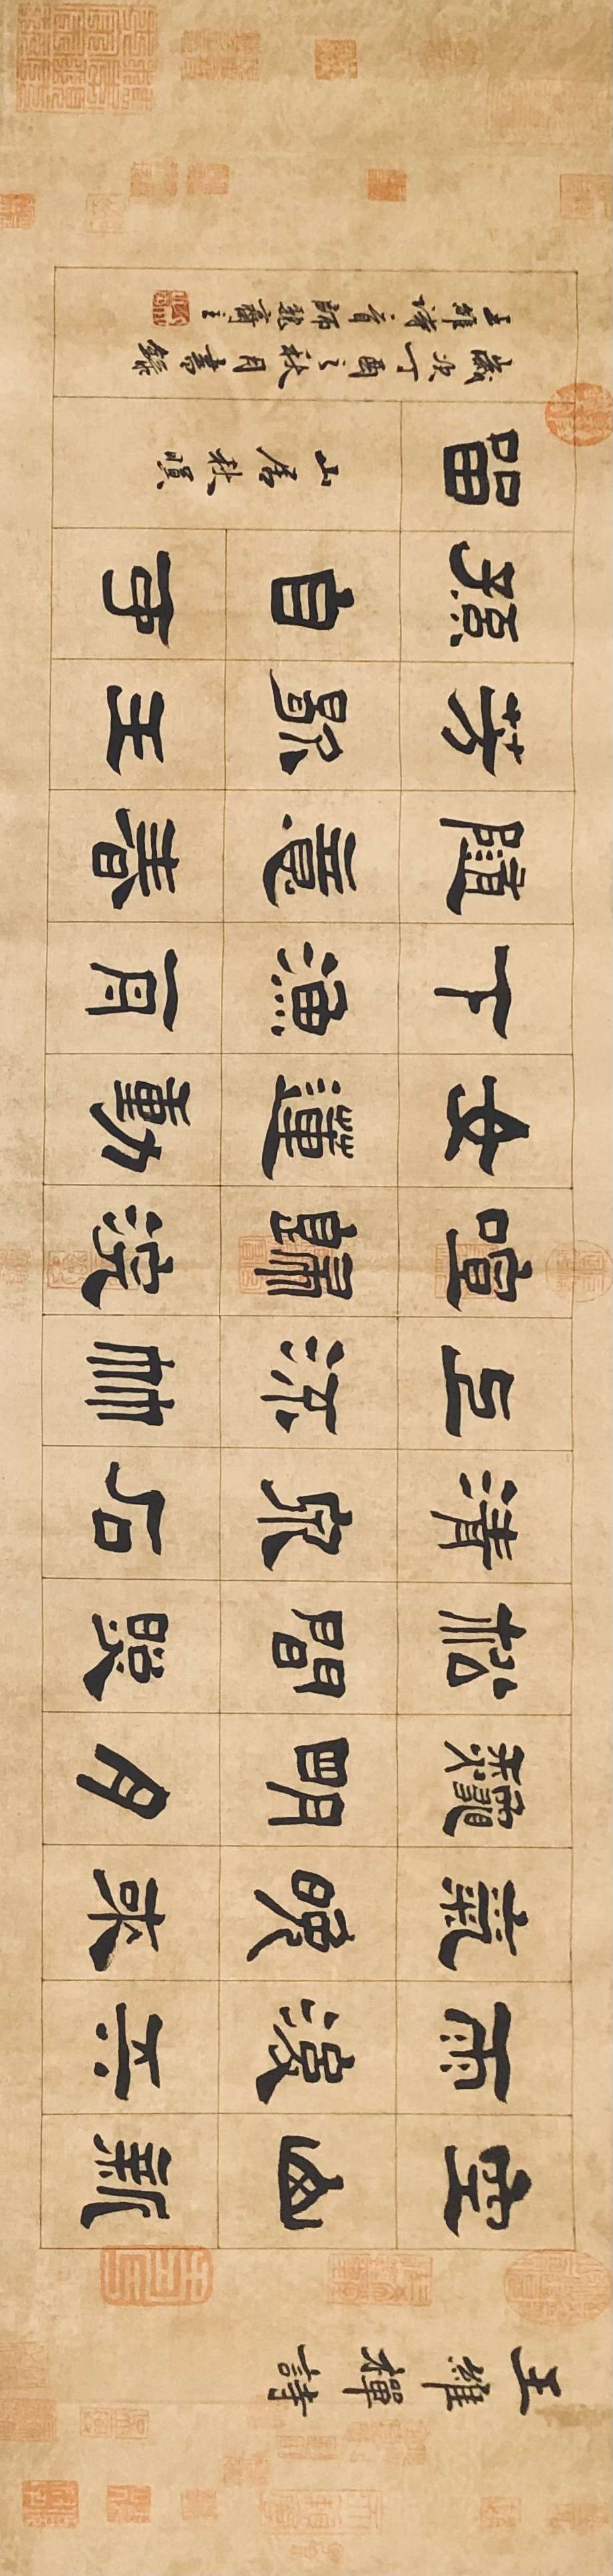 王維禪詩
空山新
雨後天
氣晚來
龝明月
松間照
清泉石
上流竹
喧歸浣
女蓮動
下漁舟
隨意春
芳歇王
孫自可
留
山居秋暝
歲次丁酉之秋月書錄
王維詩一首師齋主